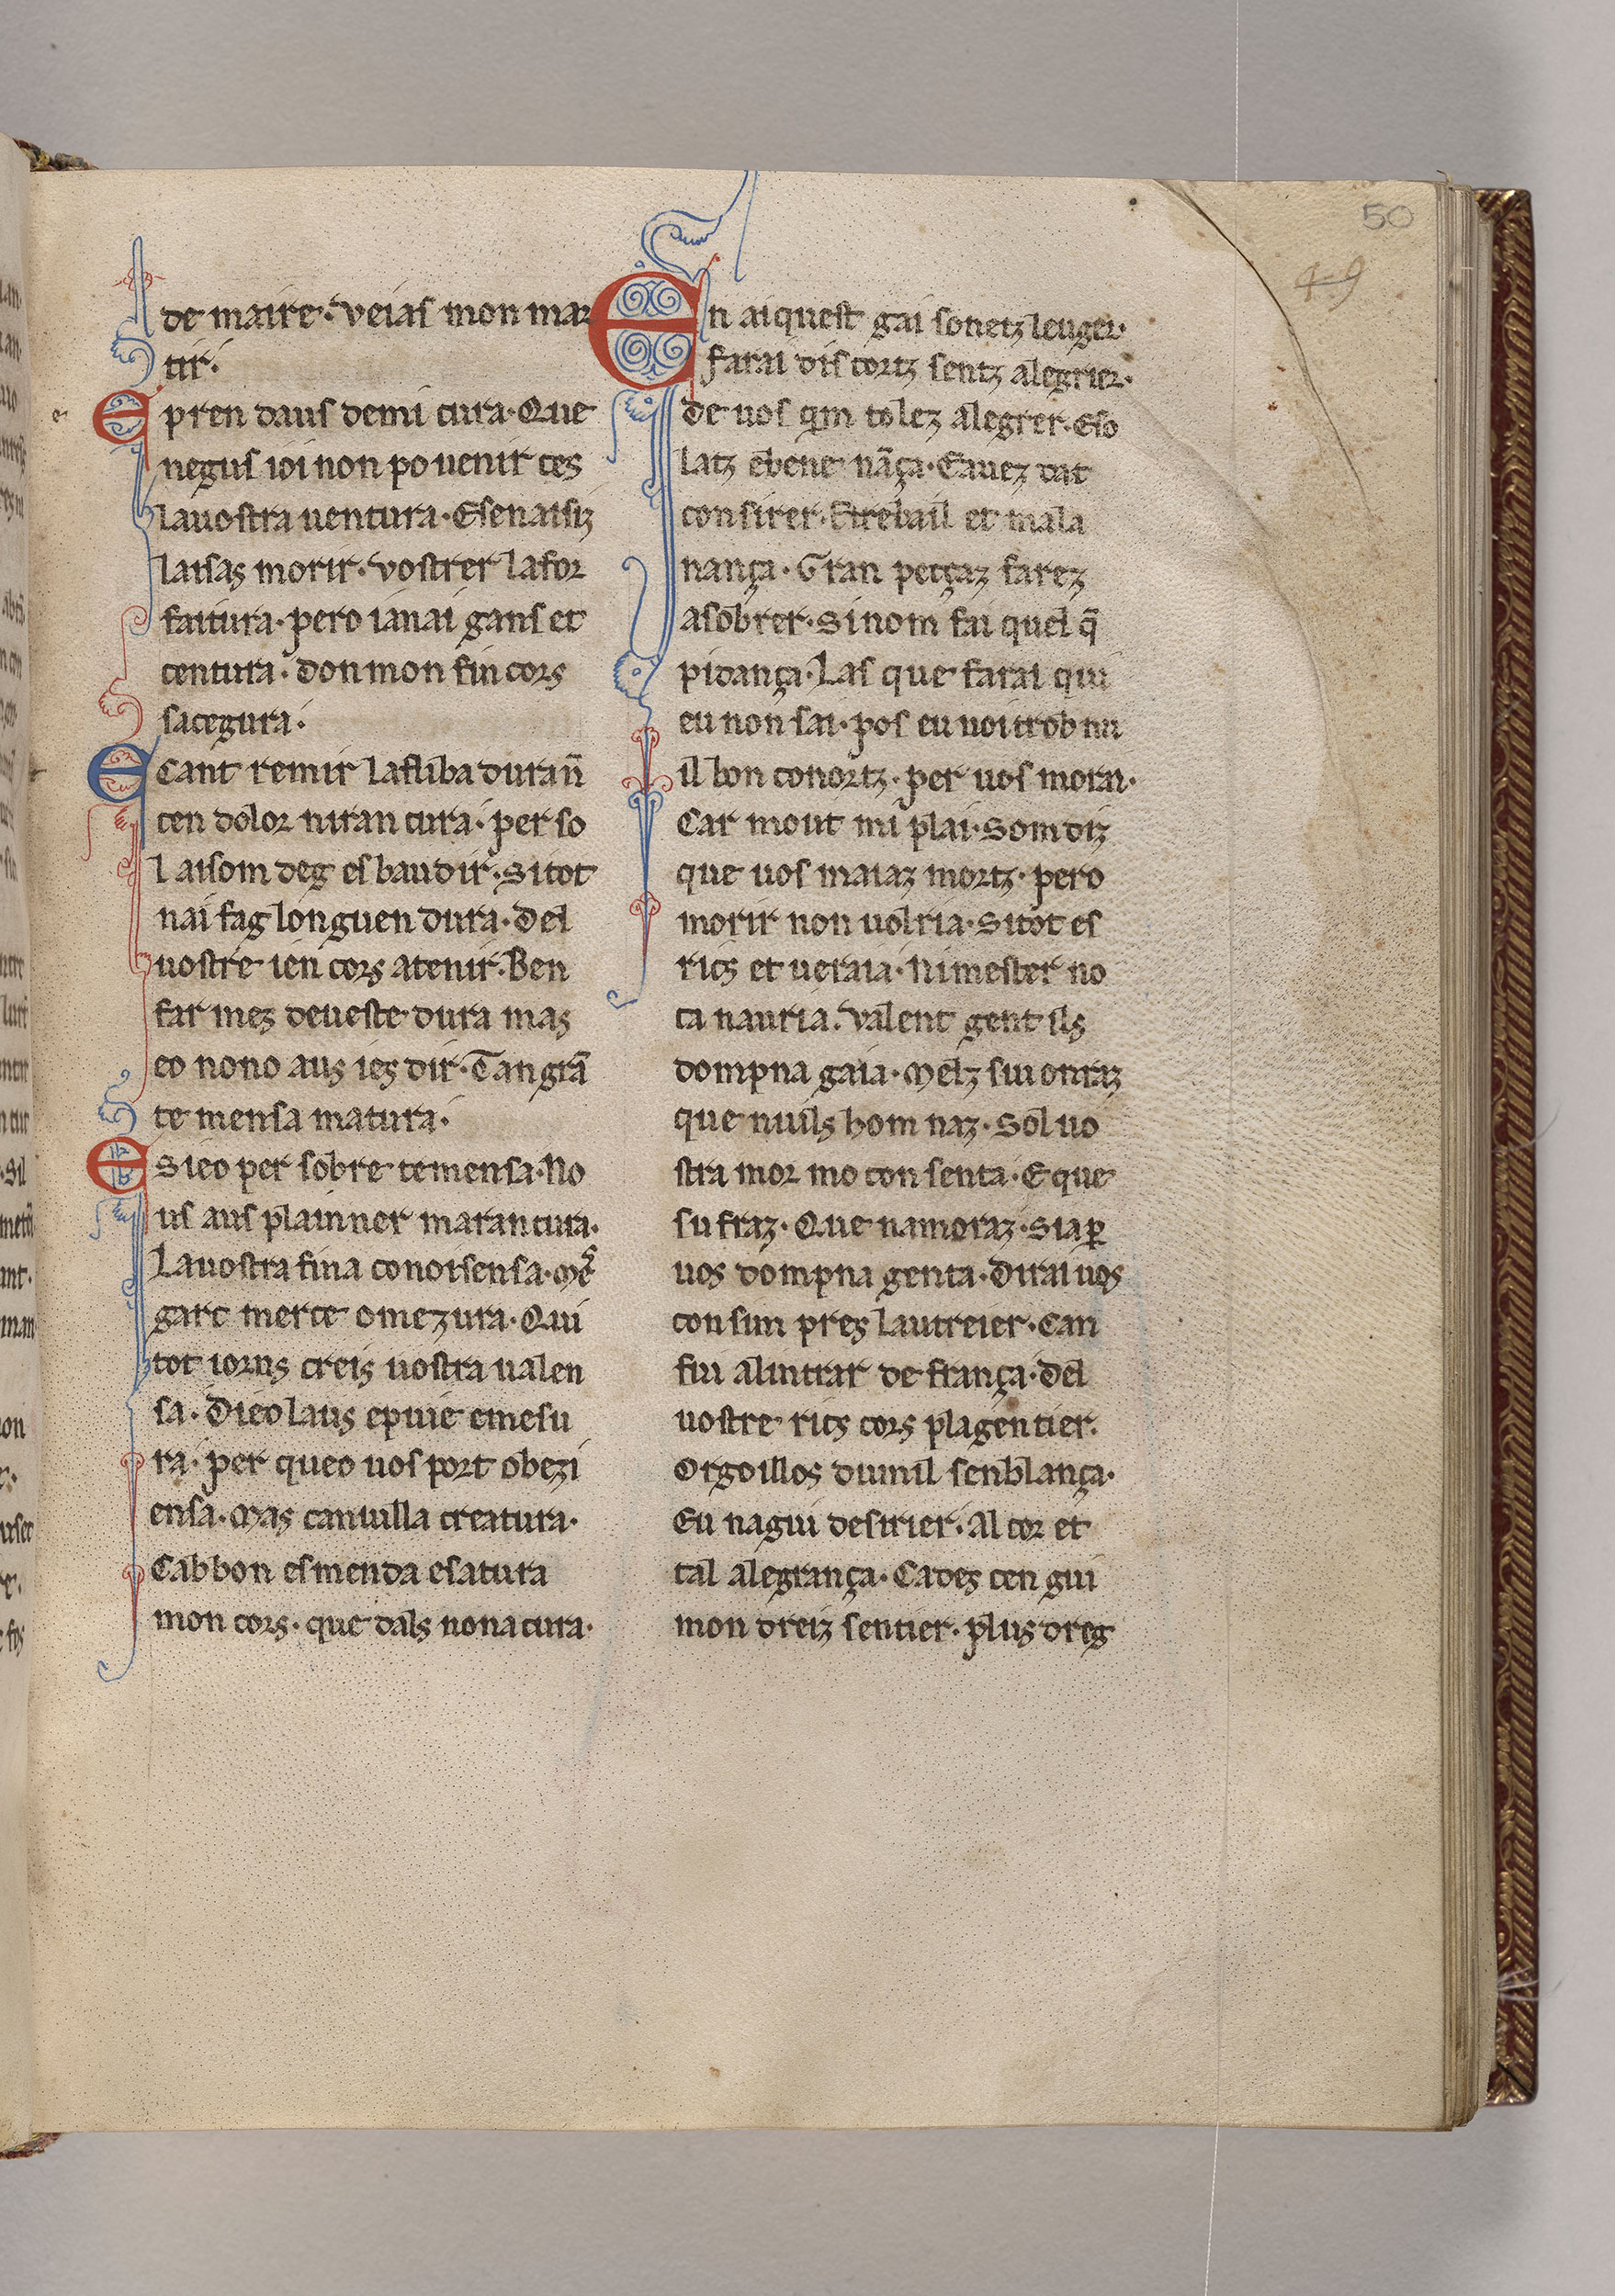 50
49
de maire. Veias mon mar
tiri.
E pren daus demi cura. Que
negus ioi non po uenir ces
la uostra uentura. Esenaisiz
laisas morir. Vostrer la for
faitura. pero ianai gans et
centura. don mon fin cors
sacegura.
E Cant remir lafliba durañ
cen dolor niran cura. per so
laisom deg esbaudir. Sitot
nai fag longuen dura. Del
uostre ien cors atenir. Ben
far mez deueste dura mas
eo nono aus ies dir. Tan grã
te mensa matura.
E Sieo per sobre temensa. No
us aus plainner marancura.
La uostra fina conoisensa.
garc merce o mezura. Qui
tot iorns creis uostra ualen
sa. Dieo laus epuie emesu
ra. per queo uos port obezi
ensa. Mas canuilla creatura.
Cab bon esmenda esatura
mon cors. que dals nona cura.
En aiquest gai sonetz leuger.
farai discortz sentz alegrier.
de uos qm tolez alegrer. Eso
latz ebene nãça. Eauez dat
consirer. Etrebail et mala
nança. Gran pecçaz farez
asobrer. Si nom fai quel q̃
pidança. Las que farai qui
eu non sai. pos eu noi trob nu
il bon conortz. per uos morai.
Car mout mi plai. Som diz
que uos maiaz mortz. pero
morir non uolria. Sitot es
rics et ueraia. Ni mester no
ca nauria. Valent gent ils
dompna gaia. Melz sui onraz
que nuils hom naz. Sol uo
stra mor mo consenta. E que
sufraz. Que namoraz. Siaꝑ
uos dompna genta. Dirai uos
con sun pres lautreier. Can
fui alintrar de frança. Del
uostre rics cors plagentier.
Orgoillos dumil senblança.
Eu nagui desirier. Al cor et
tal alegrança. Cades cen gui
mon dreiz sentier. plus dreg